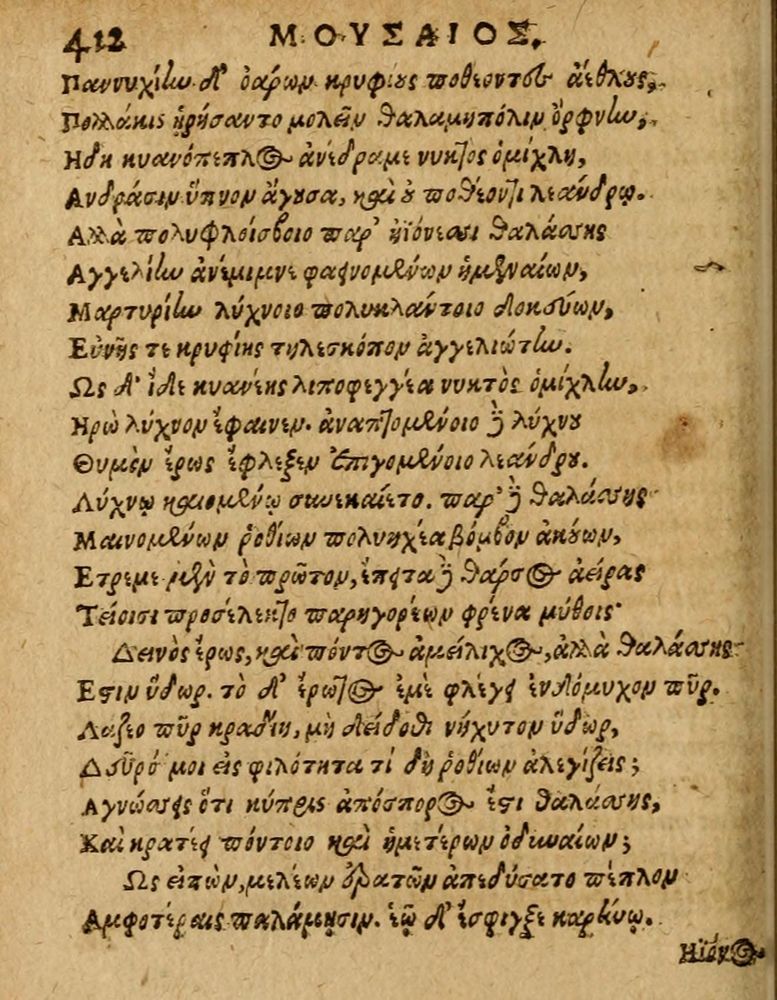 412 ΜΟΥΣΑΙΟΣ.
Παννυχίων δ' ὀάρων κρυφίους ποθέοντες ἀέθλους,
Πολλάκις ἠρήσαντο μολεῖν θαλαμηπόλιν ὄρφνην,
Ηδη κυανόπεπλος ἀνέδραμε νυκτὸς ὁμίχλη,
Ανδράσιν ὕπνον ἄγουσα, καὶ οὐ ποθέοντι λεάνδρῳ.
Αλλὰ πολυφλοίσβοιο παρ' ἠϊόνεσσι θαλάσσης
Αγγελίην ἀνέμιμνε φαεινομένων ὑμεναίων,
Μαρτυρίην λύχνοιο πολυκλαύτοιο δοκεύων,
Εὐνῆς τε κρυφίης τηλεσκόπον ἀγγελιώτην.
Ως δ' ἴδε κυανέης λιποφεγγέα νυκτὸς ὁμίχλην,
Ηρὼ λύχνον ἔφαινεν. ἀναπτομένοιο δὲ λύχνου
Θυμὸν ἔρως ἔφλεξεν ἐπειγομένοιο λεάνδρου.
Λύχνῳ καιομένῳ συνεκαίετο. παρ' δὲ θαλάσσης
Μαινομένων ῥοθίων πολυηχέα βόμβον ἀκούων,
Ετρεμε μὲν τὸ πρῶτον, ἔπειτα δὲ θάρσος ἀείρας
Τοίοισι προσέλεκτο παρηγορέων φρένα μύθοις·
Δεινὸς ἔρως, καὶ πόντος ἀμείλιχος, ἀλλὰ θαλάσσης
Εστιν ὕδωρ. τὸ δ' ἔρωτος ἐμὲ φλέγει ἐνδόμυχον πῦρ.
Λάζεο πῦρ κραδίη, μὴ δείδιθι νήχυτον ὕδωρ,
Δεῦρό μοι εἰς φιλότητα τί δὴ ῥοθίων ἀλεγίζεις;
Αγνώσσεις ὅτι κύπρις ἀπόσπορος ἐστι θαλάσσης,
Καὶ κρατέει πόντοιο καὶ ἡμετέρων ὀδυναίων;
Ως εἰπὼν, μελέων ἐρατῶν ἀπεδύσατο πέπλον
Αμφοτέραις παλάμῃσιν. ἑῷ δ' ἔσφιγξε καρήνῳ.
Ηϊόνος